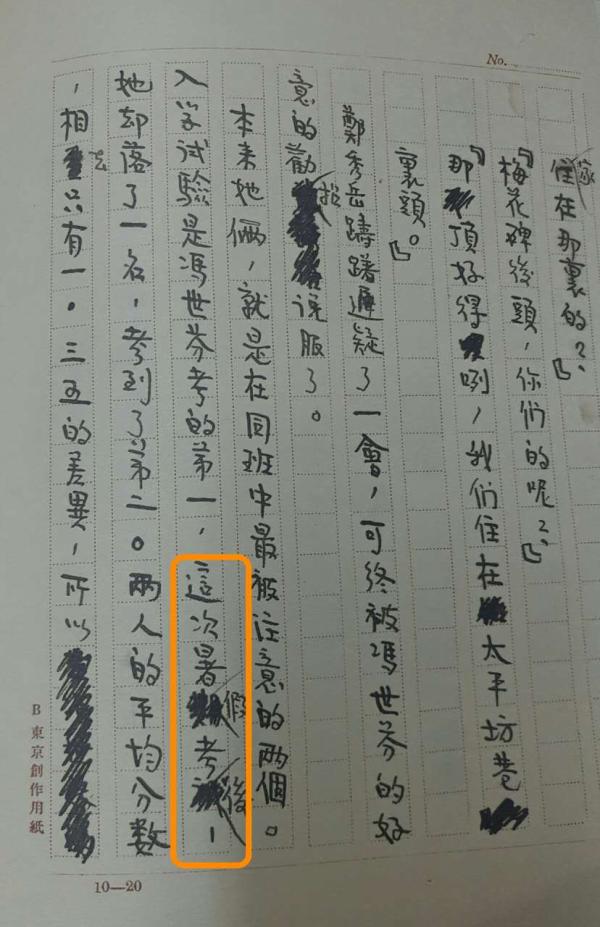 No.
家住在那裏的？』
『梅花碑後頭，你們的呢？』
『那頂好得咧，我們住在太平坊巷
裏頭。』
鄭秀岳躊躇遲疑了一會，可終被馮世芬的好
意的勸招說服了。
本来她倆，就是在同班中最被注意的两個。
入学試驗是馮世芬考的第一，這次暑假考後，
她却落了一名，考到了第二。两人的平均分数
，相去只有一。三五的差異，所以
B 東京創作用紙
10—20